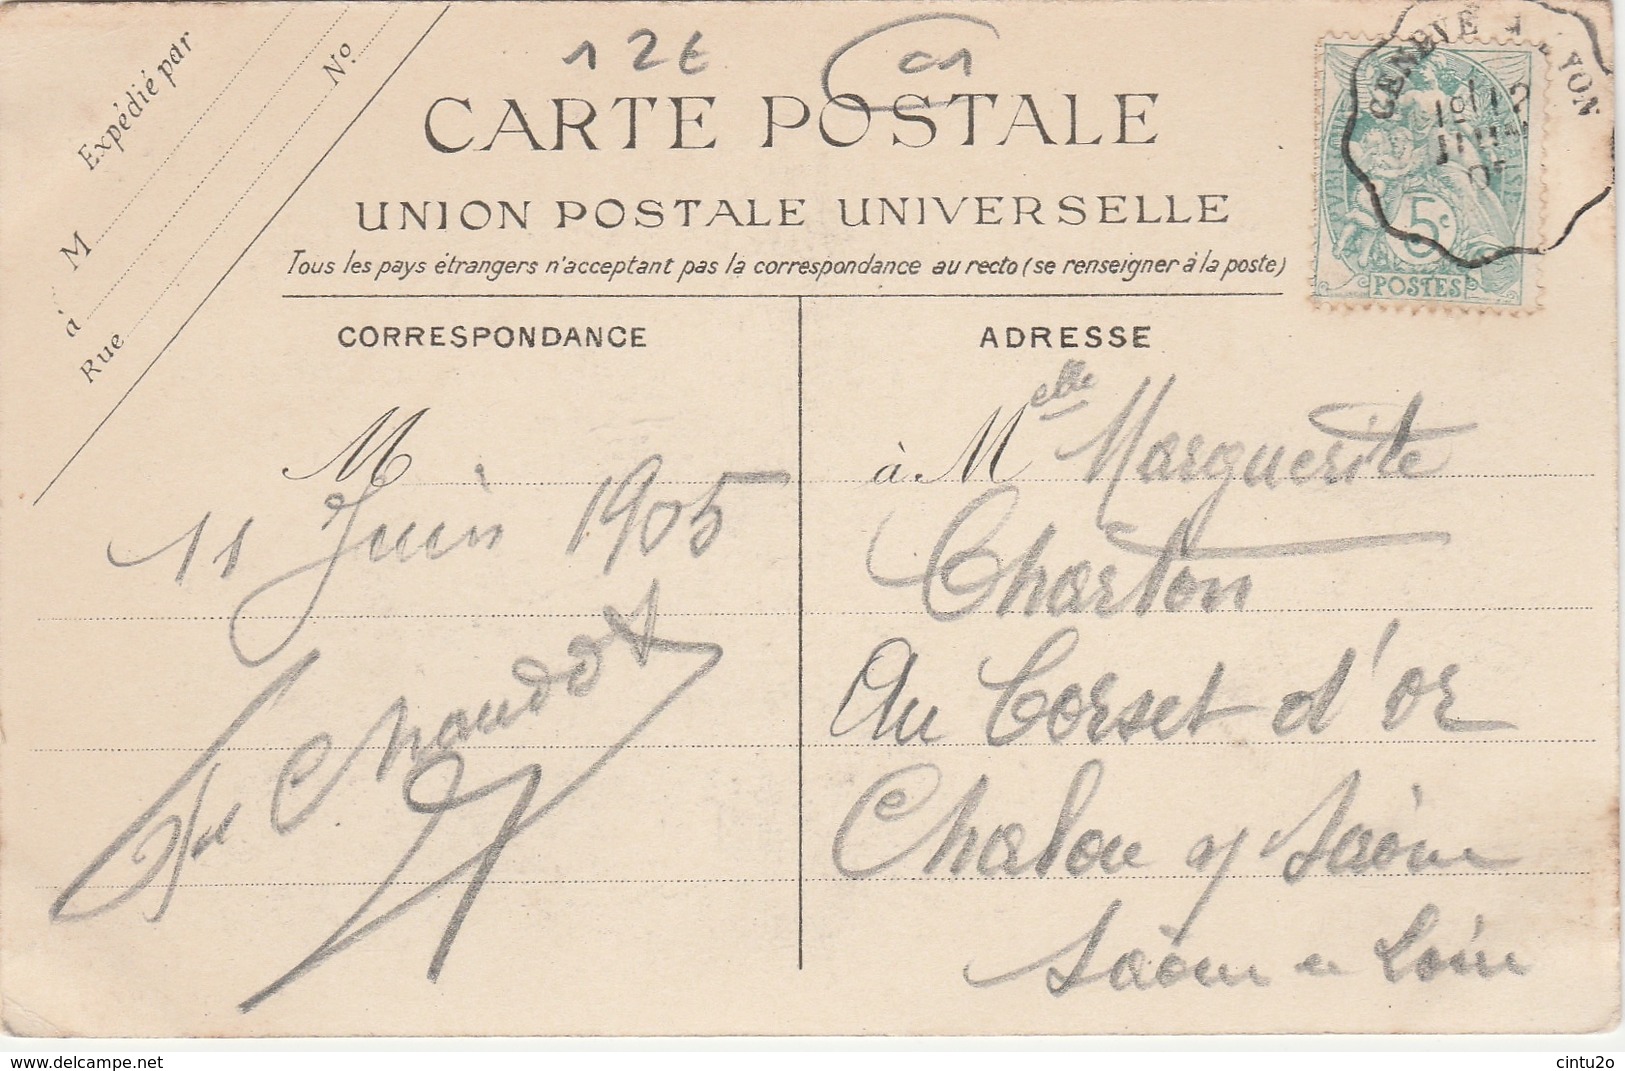 Expédié par
M
à
Rue
No
12€
01
CARTE POSTALE
UNION POSTALE UNIVERSELLE
Tous les pays étrangers n'acceptent pas la correspondance au recto (se renseigner à la poste)
GENEVE A LYON
12
JUIN
05
5c
POSTES
CORRESPONDANCE
M
11 Juin 1905
Chaudot
ADRESSE
à Melle Marguerite
Charton
Au Corset d'or
Chalon s/ Saône
Saône et Loire
www.delcampe.net
cintu2o